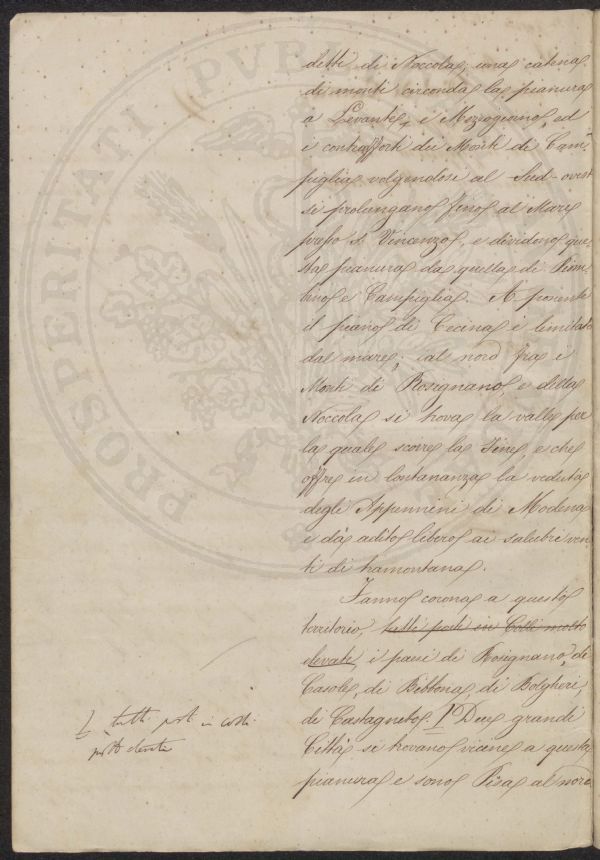 detti di Noccola; una catena
di monti circonda la pianura
a Levante, e Mezzogiorno, ed
i contrafforti dei Monti di Cam-
piglia volgendosi al Sud-ovest
si prolungano fino al Mare
presso S. Vincenzo, e dividono que-
sta pianura da quella di Piom-
bino e Campiglia. A ponente
il piano di Cecina è limitato
dal mare; al nord fra i
Monti di Rosignano, e della
Noccola si trova la valle per
la quale scorre la Fine, e che
offre in lontananza la veduta
degli Appennini di Modena
e dà adito libero ai salubri ven-
ti di tramontana.
Fanno corona a questo
territorio, tutti posti in Colli molto
elevati, i paesi di Rosignano, di
Casole, di Bibbona, di Bolgheri,
di Castagneto. Due grandi
Città si trovano vicine a questa
pianura e sono Pisa al nord
tutti posti in colli
molto elevati
PROSPERITATI PVBLICAE